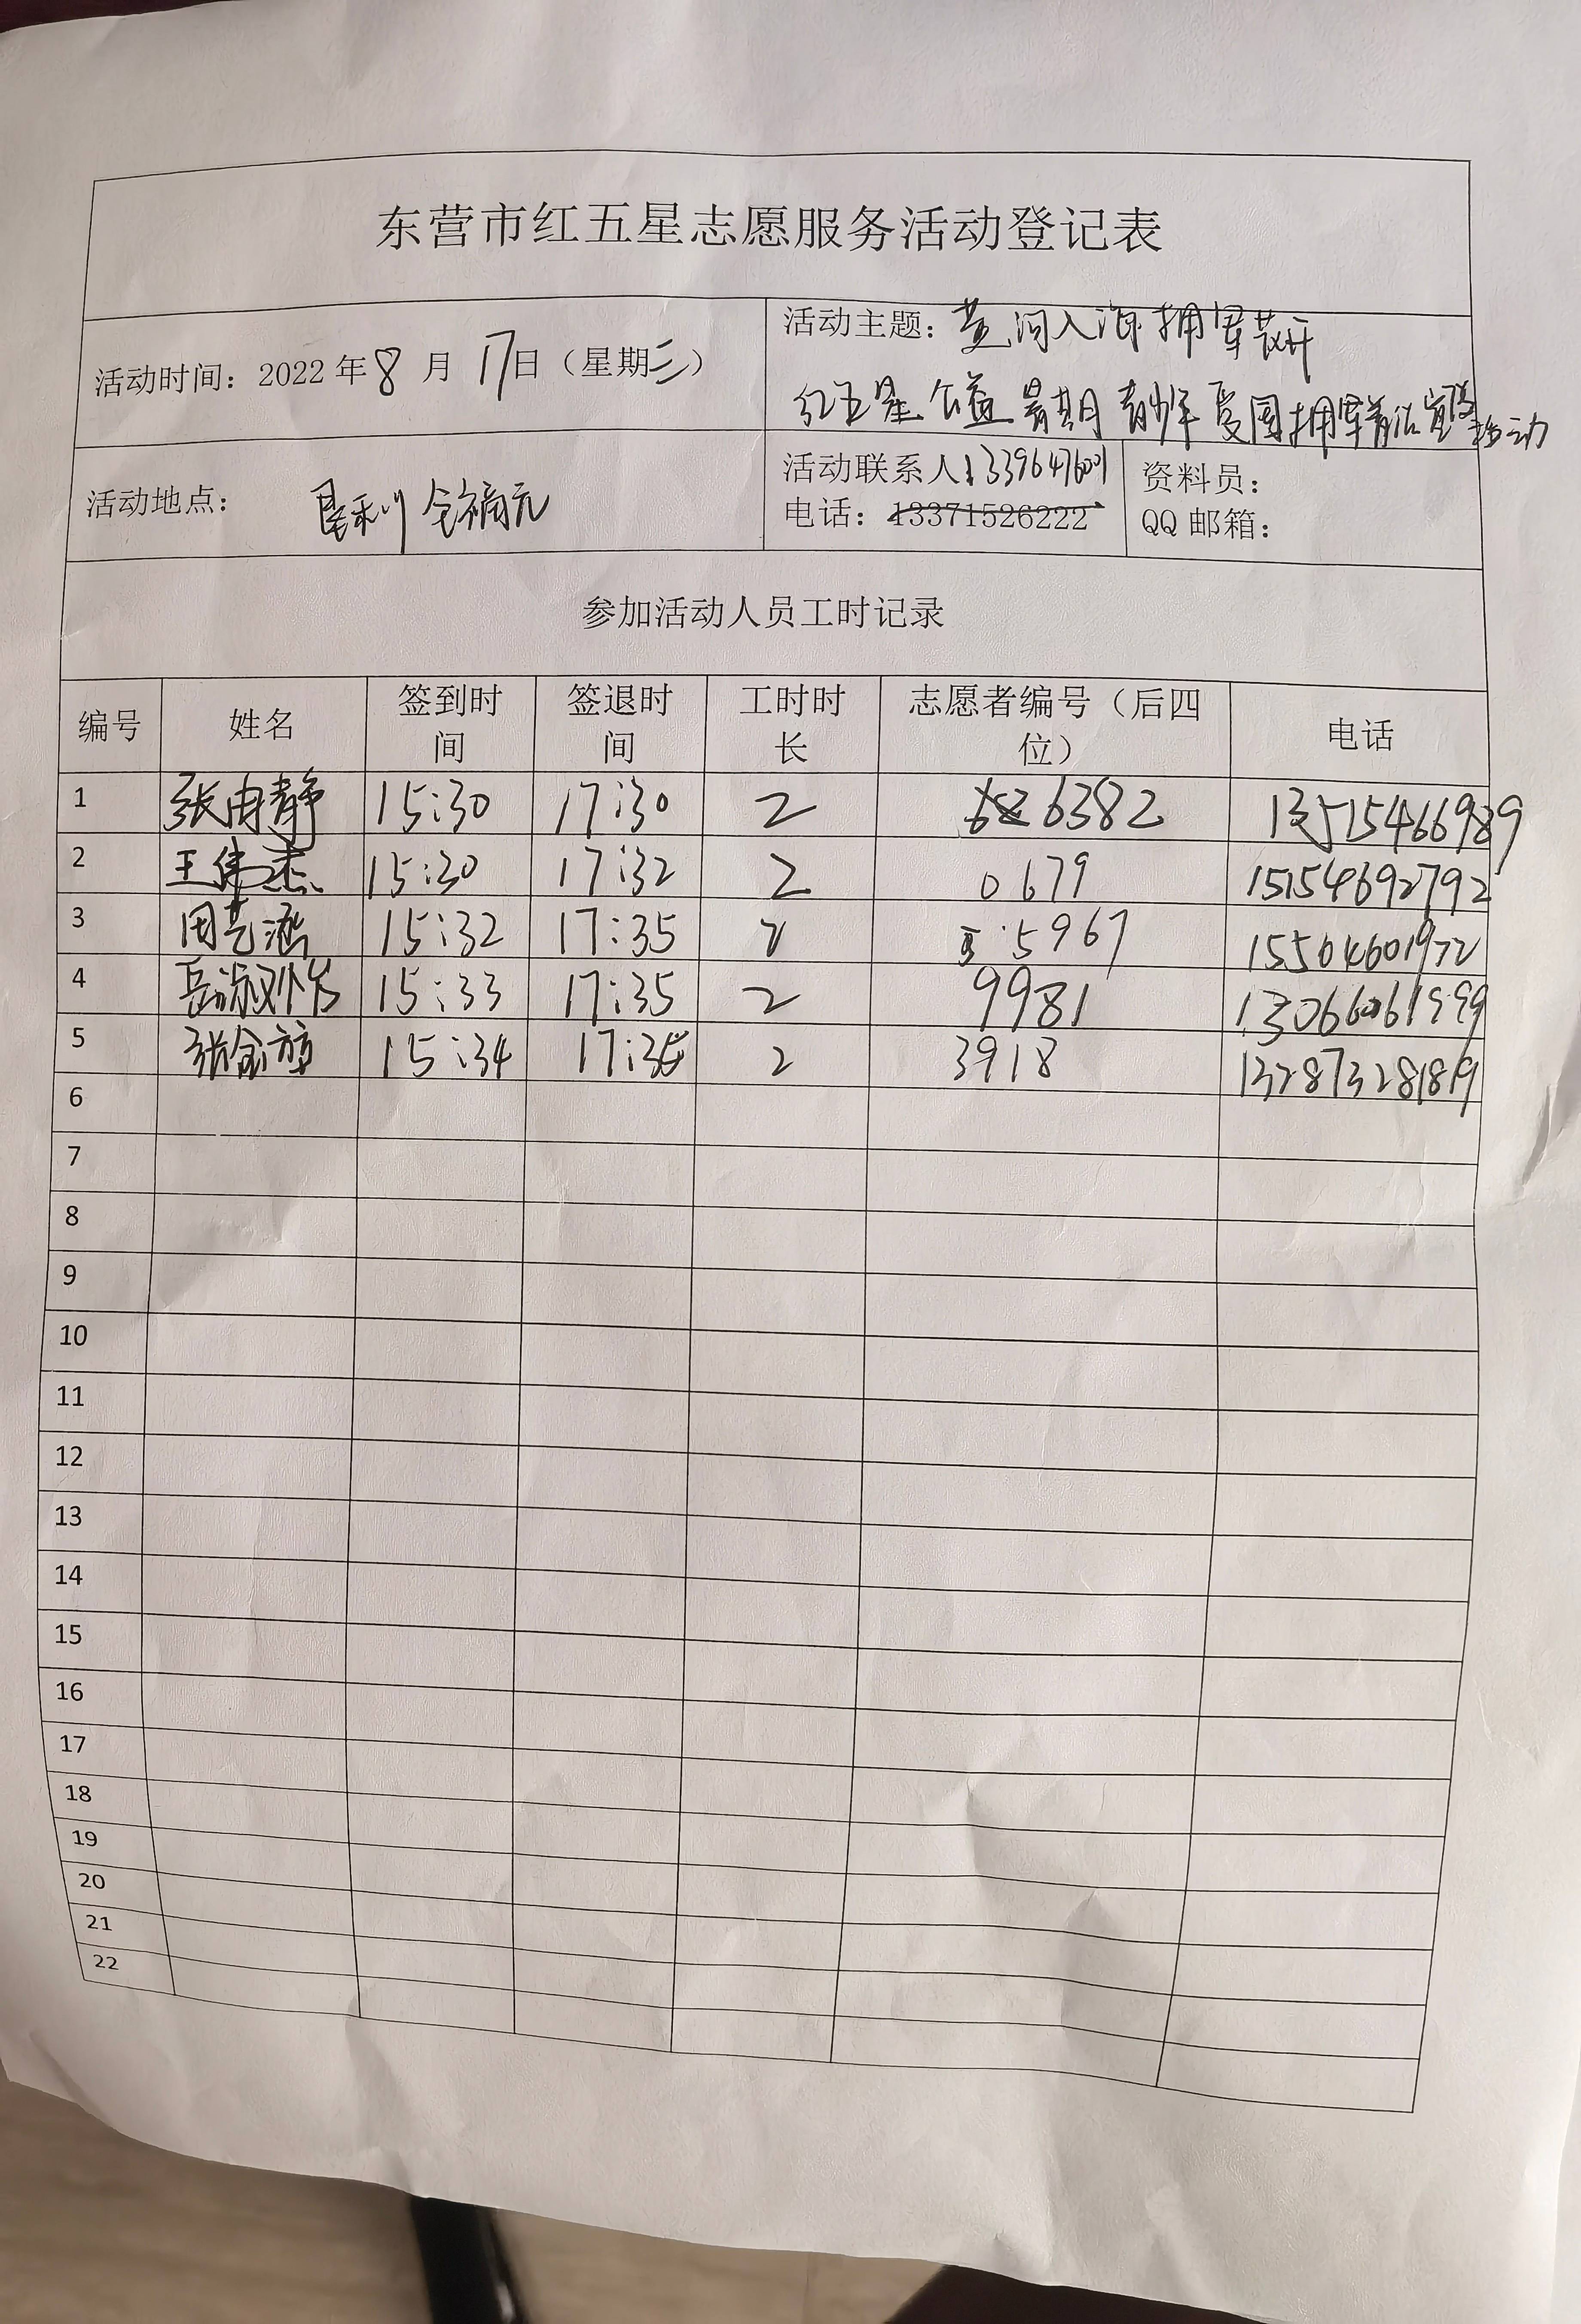 东营市红五星志愿服务活动登记表
活动时间：2022年8月17日（星期三）
活动主题：黄河入海拥军花开
红五星公益暑期青少年爱国拥军前沿实践活动
活动地点：垦利 全福元
活动联系人：13396476001
电话：13371526222
资料员：
QQ邮箱：
参加活动人员工时记录
编号 姓名 签到时间 签退时间 工时时长 志愿者编号（后四位） 电话
1 张冉静 15:30 17:30 2 6382 13515466989
2 王伟杰 15:30 17:32 2 0679 15154692792
3 周艺涵 15:32 17:35 2 5967 15504601972
4 岳淑 15:33 17:35 2 9981
5 张金 15:34 17:35 2 3918
6
7
8
9
10
11
12
13
14
15
16
17
18
19
20
21
22